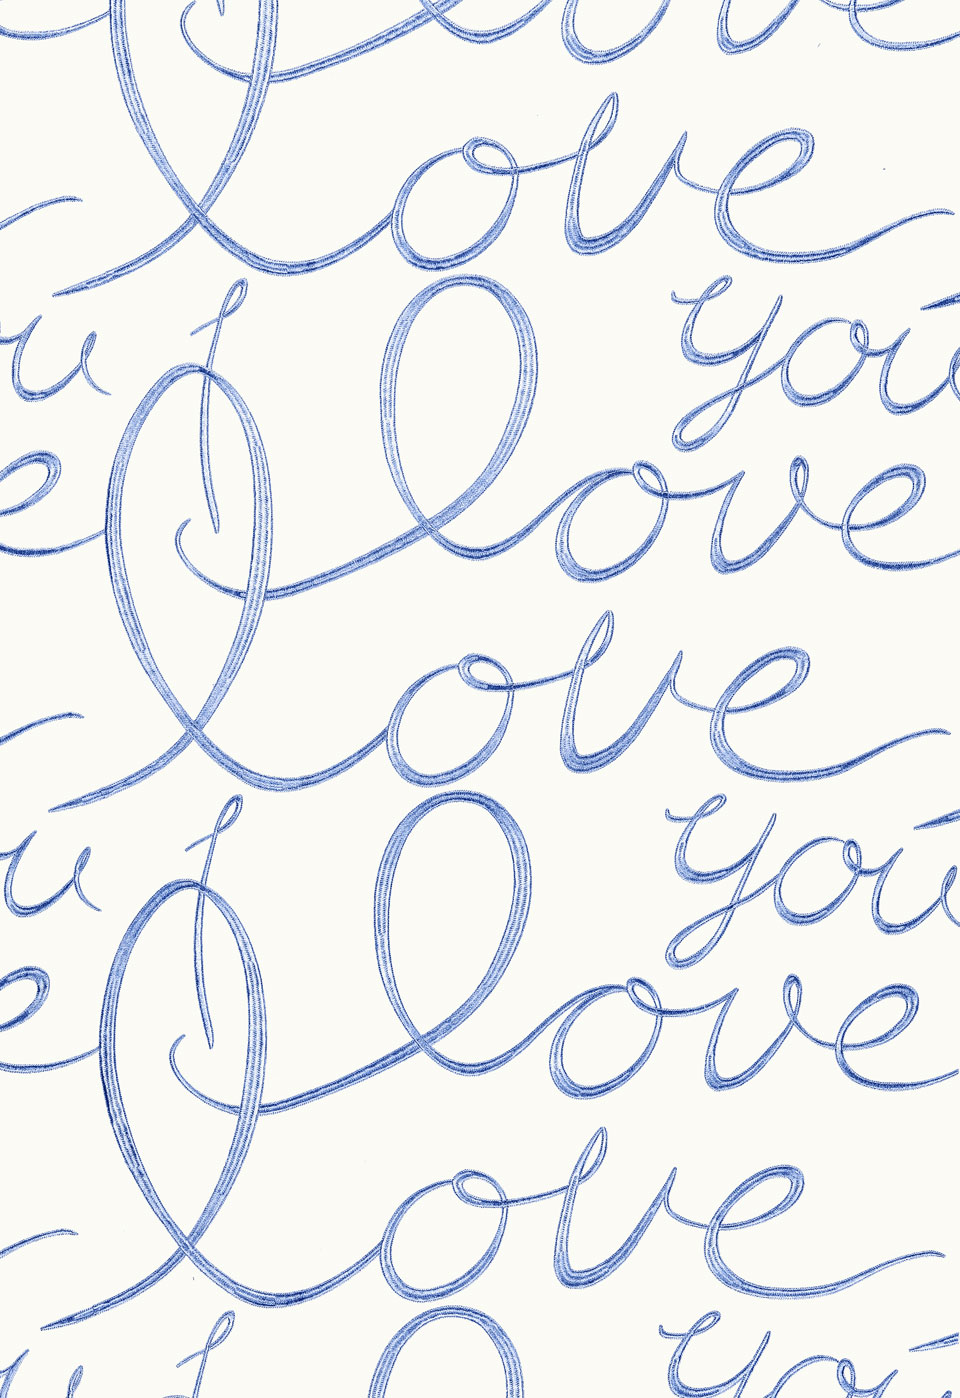 love
I you
love
love
I you
love
love